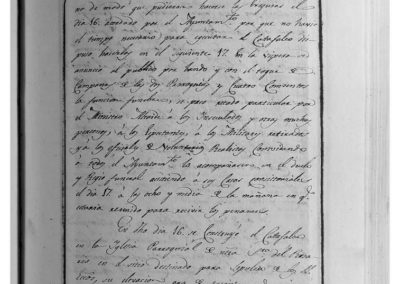 no de modo que pudieran hacerse las exequias el
dia 16. acordado por el Ayuntam.to por que no havia
el tiempo necesario para executar el Catafalco dis
puso hacerlas en el siguiente 17. En la vispera se
anunció al publico por bando y con el toque de
Campanas de las dos Parroquias y Cuatro Conventos
la funcion funebre, se pasó recado particular por
el Ministro Alcalde à los Insaculados y otras muchas
personas, à los Diputantes, à los Militares retirados
ya à los oficiales de Voluntarios Realistas, Convidando
à todos el Ayuntam.to la acompañacion en el duelo
y Regio funeral asistiendo à sus Casas consistoriales
el dia 17. à las ocho y media de la mañana en q.e
estaria reunido para recivir los pesames.
En dho dia 16. se Construyó el Catafalco
en la Iglesia Parroquial de ntra Sra del Rosa
rio en el sitio destinado para Sepulcro de los
su elevacion